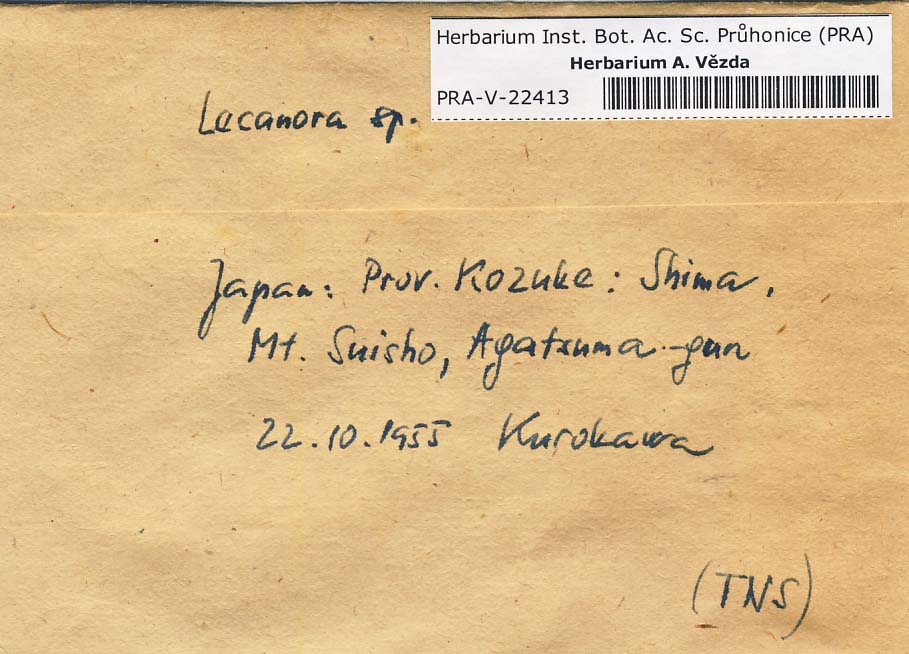 Herbarium Inst. Bot. Ac. Sc. Průhonice (PRA)
Herbarium A. Vězda
PRA-V-22413
Lecanora sp.
Japan: Prov. Kozuke: Shima,
Mt. Suisho, Agatsuma-gun
22.10.1955 Kurokawa
(TNS)